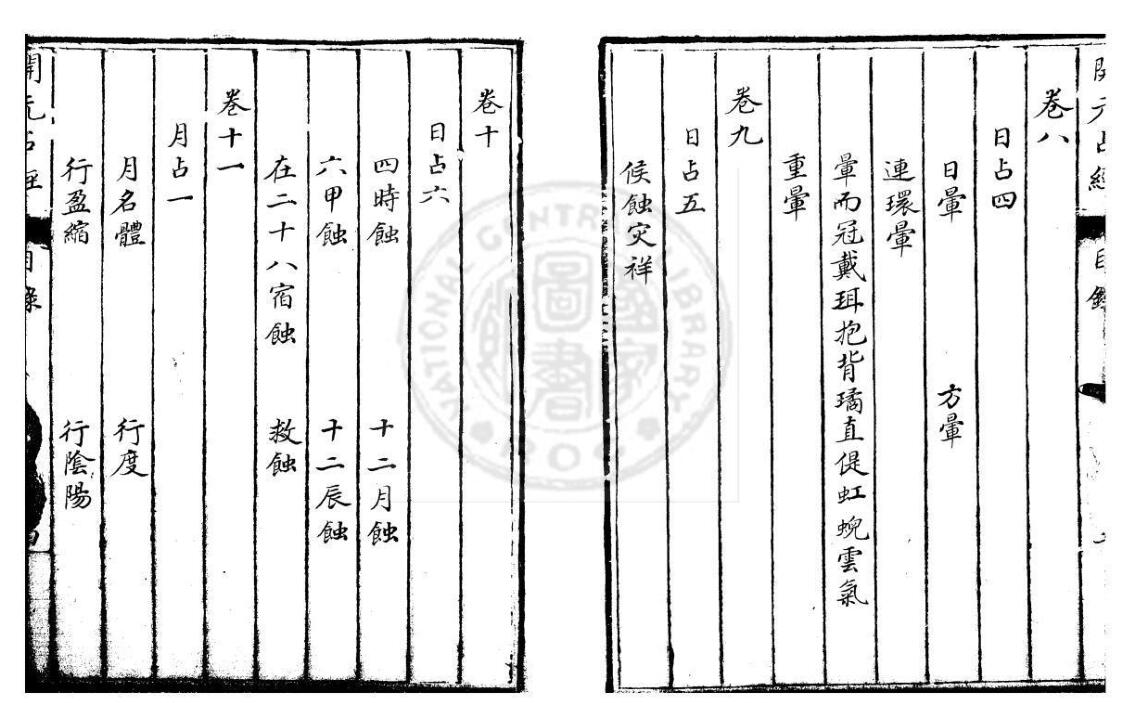 開元占經
目錄
卷八
日占四
日暈 方暈
連環暈
暈而冠戴珥抱背璚直偍虹蜺雲氣
重暈
卷九
日占五
候蝕灾祥
卷十
日占六
四時蝕 十二月蝕
六甲蝕 十二辰蝕
在二十八宿蝕 救蝕
卷十一
月占一
月名體 行度
行盈縮 行陰陽
開元占經
目錄
四
NATIONAL CENTRAL LIBRARY
R.O.C.
國家圖書館